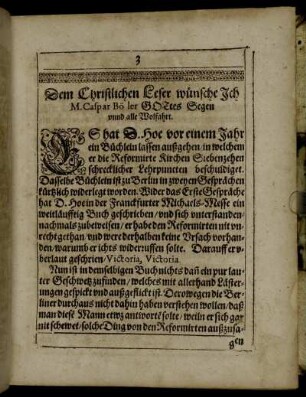 3
Dem Christlichen Leser wünsche Ich
M. Caspar Bö ler GOttes Segen
vnnd alle Wolfahrt.
ES hat D. Hoe vor einem Jahr
ein Büchlein lassen außgehen in welchem
er die Reformirte Kirchen Siebenzehen
schrecklicher Lehrpuncten beschuldiget.
Dasselbe Büchlein ist zu Berlin in zweyen Gesprächen
kürtzlich widerlegt worden. Wider das Erste Gespräche
hat D. Hoe in der Franckfurter Michaels-Messe ein
weitläufftig Buch geschrieben / vnd sich vnterstanden
nachmals zubeweisen / er habe den Reformirten nit vn-
recht gethan vnd were derhalben keine Vrsach vorhan-
den / warumb er ichts widerruffen solte. Darauff er v-
berlaut geschrien / Victoria, Victoria.
Nun ist in demselbigen Buch nichts daß ein pur lau-
ter Geschwetz zufinden / welches mit allerhand Läster-
ungen gespickt vnd außgeflickt ist. Derowegen die Ber-
liner durchaus nicht dahin haben verstehen wollen / daß
man diesem Mann etwz antwort&ē solte / weiln er sich gar
nit schewet / solche Ding von den Reformirten außzusa-
gen